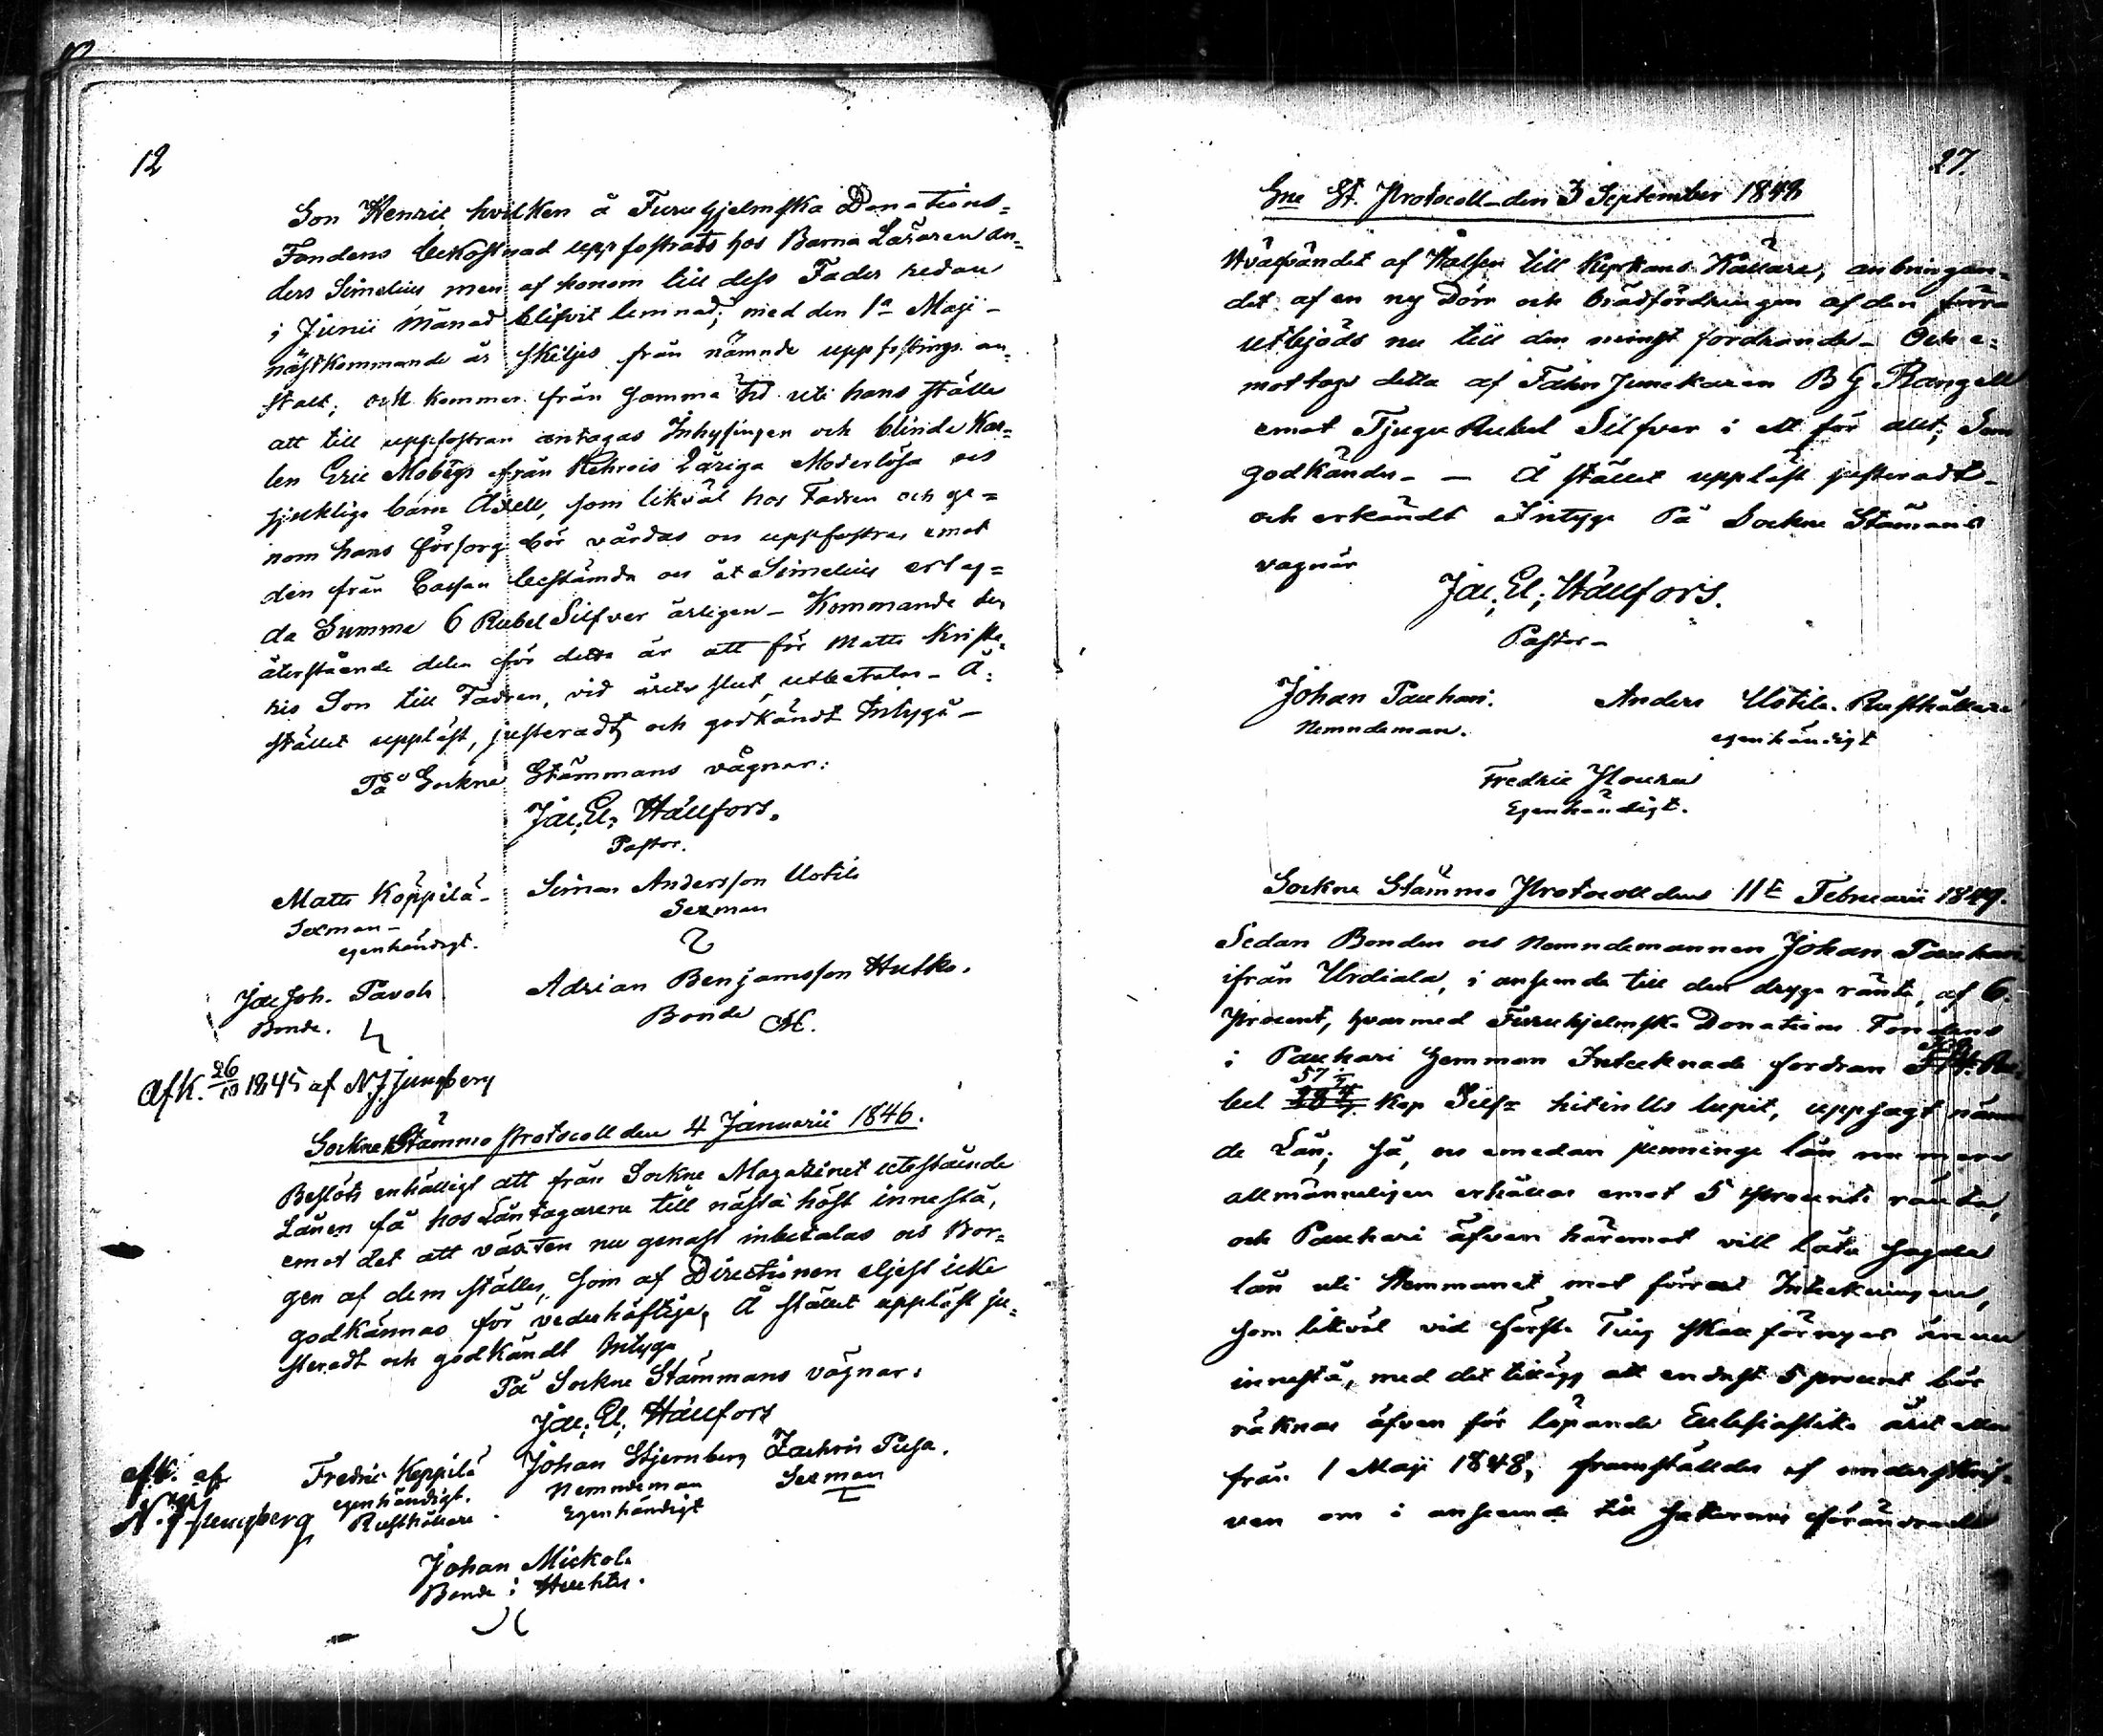 12
Son Henric hvilken å Furuhjelmska Donations=
Fondens bekostnad uppfostrats hos Barna Läraren An=
ders Simelius men af honom till dess Fader redan
i Junii Månad blifvit lemnad; med den 1a Maji
nästkommande år skiljes från nämnde uppfostrings an=
stalt; och kommer från samma tid uti hans ställe
att till uppfostran antagas Inhysingen och blinde Kar=
len Eric Mobergs från Kehrois åriga Moderlösa och
sjukliga barn Adell, som likväl hos Fadren och ge=
nom hans försorg bör vårdas och uppfostras emot
den från Cassan bestämda och åt Simelius erlag=
da Summa 6 Rubel Silfver årligen - Kommande den
återstående delen för detta år att för Matts
his Son till Fadren, vid årets slut, utbetalas - Å
stället uppläst, justeradt och godkändt Intyga -
På Sockne Stämmans vägnar:
Jac. El. Hällfors.
Pastor.
Matts Köppilä - Simon Andersson Uotila
Sexman - Sexman
egenhändigt.
Jac Joh. Pavola Adrian Benjamsson Hutko.
Bonde. Bonde
Afk. 26/10 1845 af N. J. Jungberg
Sockne Stämmo Protocoll den 4 Januarii 1846.
Beslöts enhälligt att från Sockne Magazinet utestående
Lånen få hos Låntagarene till nästa höst innestå,
emot det att växten nu genast inbetalas och Bor=
gen af dem ställes, som af Directionen eljest icke
godkännas för vederhäftige, Å stället uppläst ju=
steradt och godkändt Intyga
På Sockne Stämmans vägnar:
Jac. El. Hällfors
afk. af Fredric Keppilä Johan Stjernberg Zachris Pusa.
N. J. Jungberg egenhändigt. Nemndeman Sexman
Rusthållare Egenhändigt
Johan Mickola
Bonde i
27.
Sne St. Protocoll den 3 September 1848
Hväfvandet af Halsen till Kyrkans Källare, anbringan=
det af en ny Dörr och brädfordringen af den förra
utbjöds nu till den minst fordrande - Och e=
mottogs detta af Fahnjunckaren B G Rangell
emot Tjugu Rubel Silfver i ett för allt; Som
godkändes - - Å stället uppläst justeradt -
och erkändt Intyga På Sockne Stämmans
vägnar
Jac. El. Hällfors.
Pastor -
Johan Pauhari. Anders Uotila. Rusthållare
Nemndeman. egenhändigt
Fredric
Egenhändigt.
Sockne Stämmo Protocoll den 11te Februarii 1849.
Sedan Bonden och Nemndemannen Johan Pauhari
ifrån Urdiala, i anseende till den dryga ränta, af 6.
Procent, hvarmed Furuhjelmska Donations Fondens
i Pauhari Hemman Intecknade fordran
bel 57 1/7 Kop Silfr hitintills lupit, uppsagt nämn
de Lån; Så, och emedan penninge lån nu mera
allmänneligen erhållas emot 5 Procents ränta,
och Pauhari äfven häremot vill låta sagde
lån uti Hemmanet mot förra Inteckningen,
som likväl vid första Ting skall förnyas ännu
innestå, med det tillägg att endast 5 procent bör
räknas äfven för löpande Ecclesiastika året eller
från 1 Maji 1848, framställdes af underskrif=
ven om i anseende till sakernas förändrade